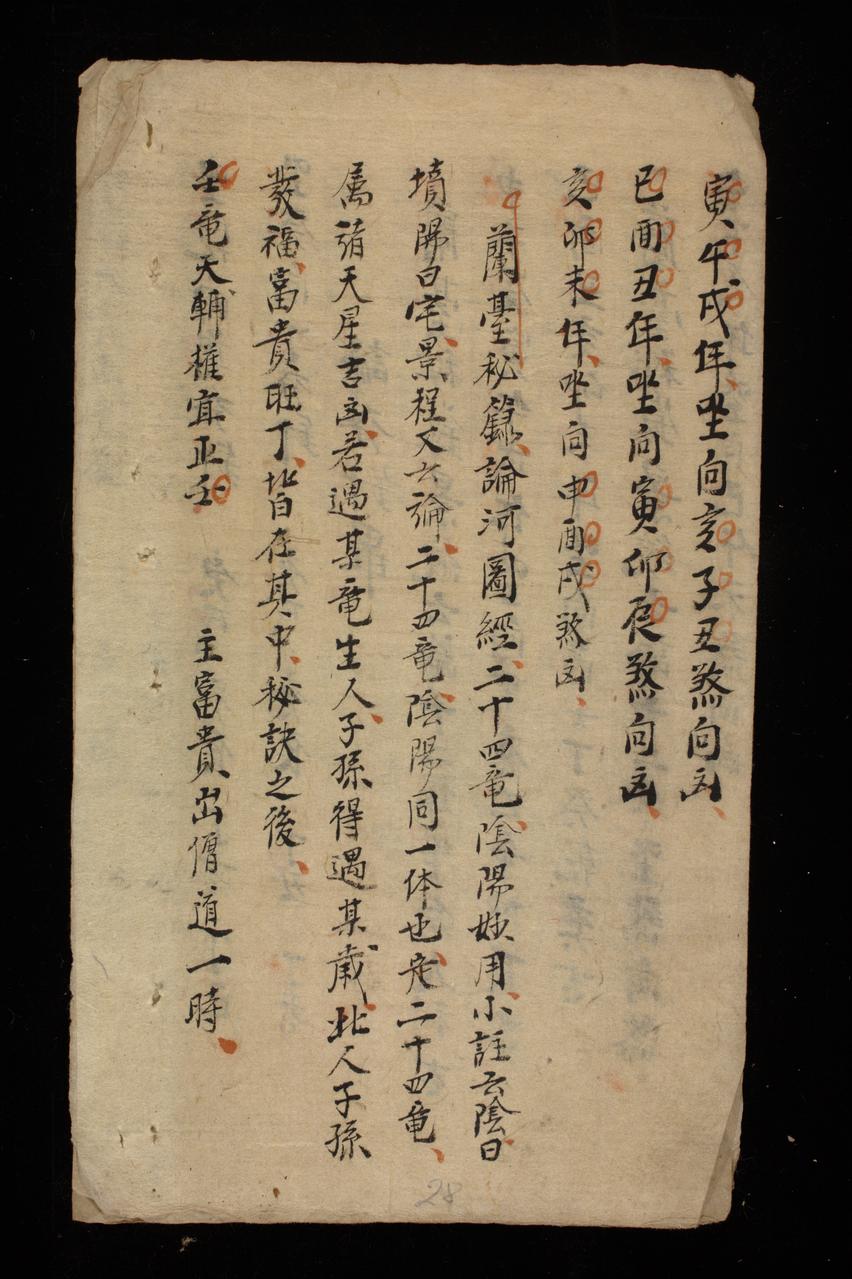 寅午戌年坐向亥子丑煞向凶
巳酉丑年坐向寅卯辰煞向凶
亥卯未年坐向申酉戌煞凶
蘭臺秘籙論河圖經二十四竜陰陽妙用小註云陰曰
墳陽曰宅景程又云論二十四竜陰陽同一体也定二十四竜
属諸天星吉凶若遇某竜生人子孫得遇某歲此人子孫
發福富貴旺丁皆在其中秘訣之後
壬竜天輔權宜正壬 主富貴出僧道一時
28